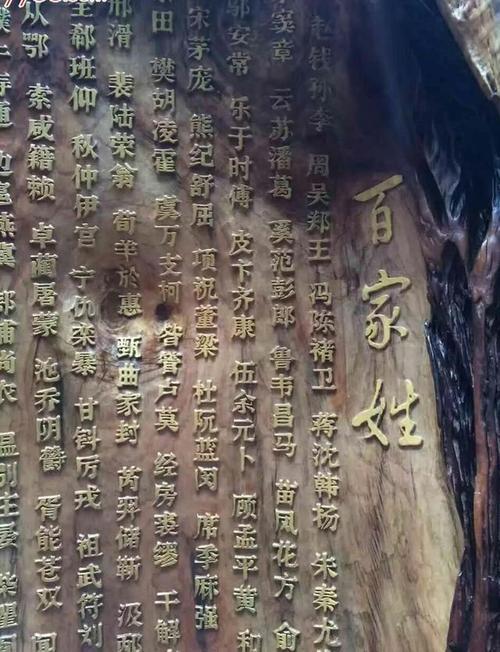 百家姓
赵钱孙李 周吴郑王 冯陈褚卫 蒋沈韩杨 朱秦尤
窦章 云苏潘葛 奚范彭郎 鲁韦昌马 苗凤花方 俞
邬安常 乐于时傅 皮卞齐康 伍余元卜 顾孟平黄 和
宋茅庞 熊纪舒屈 项祝董梁 杜阮蓝闵 席季麻强
田 樊胡凌霍 虞万支柯 昝管卢莫 经房裘缪 干解
邢滑 裴陆荣翁 荀羊於惠 甄曲家封 芮羿储靳 汲邴
郗班仰 秋仲伊宫 宁仇栾暴 甘钭厉戎 祖武符刘
从鄂 索咸籍赖 卓蔺屠蒙 池乔阴鬱 胥能苍双
通 边扈燕冀 郏浦尚农 温别庄晏 柴瞿